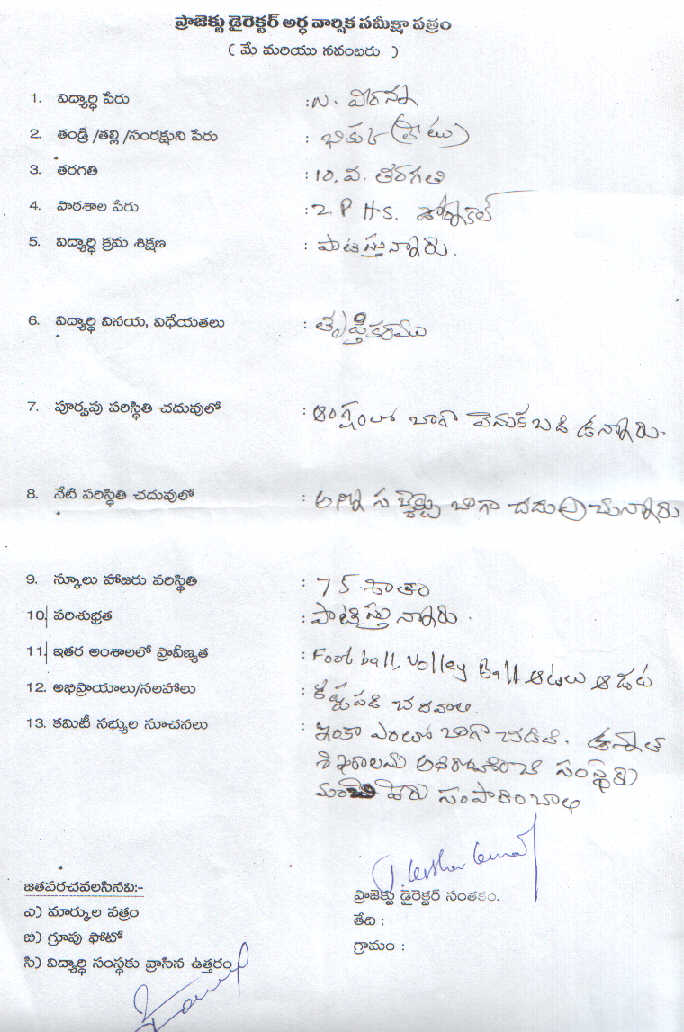 ప్రాజెక్టు డైరెక్టర్ అర్ధ వార్షిక సమీక్షా పత్రం
( మే మరియు నవంబరు )
1. విద్యార్ధి పేరు : N. వీరన్న
2. తండ్రి /తల్లి /సంరక్షుని పేరు :
3. తరగతి : 10. వ. తరగతి
4. పాఠశాల పేరు : Z P H S. డోర్నకల్
5. విద్యార్ధి క్రమ శిక్షణ : పాటిస్తున్నారు.
6. విద్యార్ధి వినయ, విధేయతలు : తృప్తికరము
7. పూర్వపు పరిస్థితి చదువులో : బాగా వెనుకబడి ఉన్నారు.
8. నేటి పరిస్థితి చదువులో : అన్ని సబ్జెక్ట్స్ బాగా చదువుచున్నారు
9. స్కూలు హాజరు పరిస్థితి : 75 శాతం
10. పరిశుభ్రత : పాటిస్తున్నారు.
11. ఇతర అంశాలలో ప్రావీణ్యత : Foot ball, Volley Ball ఆటలు ఆడుట
12. అభిప్రాయాలు/సలహాలు : కష్టపడి చదవాలి.
13. కమిటీ సభ్యుల సూచనలు : ఇంకా బాగా చదివి. ఉన్నత
శిఖరాలను అధిరోహించి సంస్థకు
మంచి పేరు సంపాదించాలి
జతపరచవలసినవి:-
ఎ) మార్కుల పత్రం
బి) గ్రూపు ఫోటో
సి) విద్యార్ధి సంస్థకు వ్రాసిన ఉత్తరం
ప్రాజెక్టు డైరెక్టర్ సంతకం.
తేది :
గ్రామం :